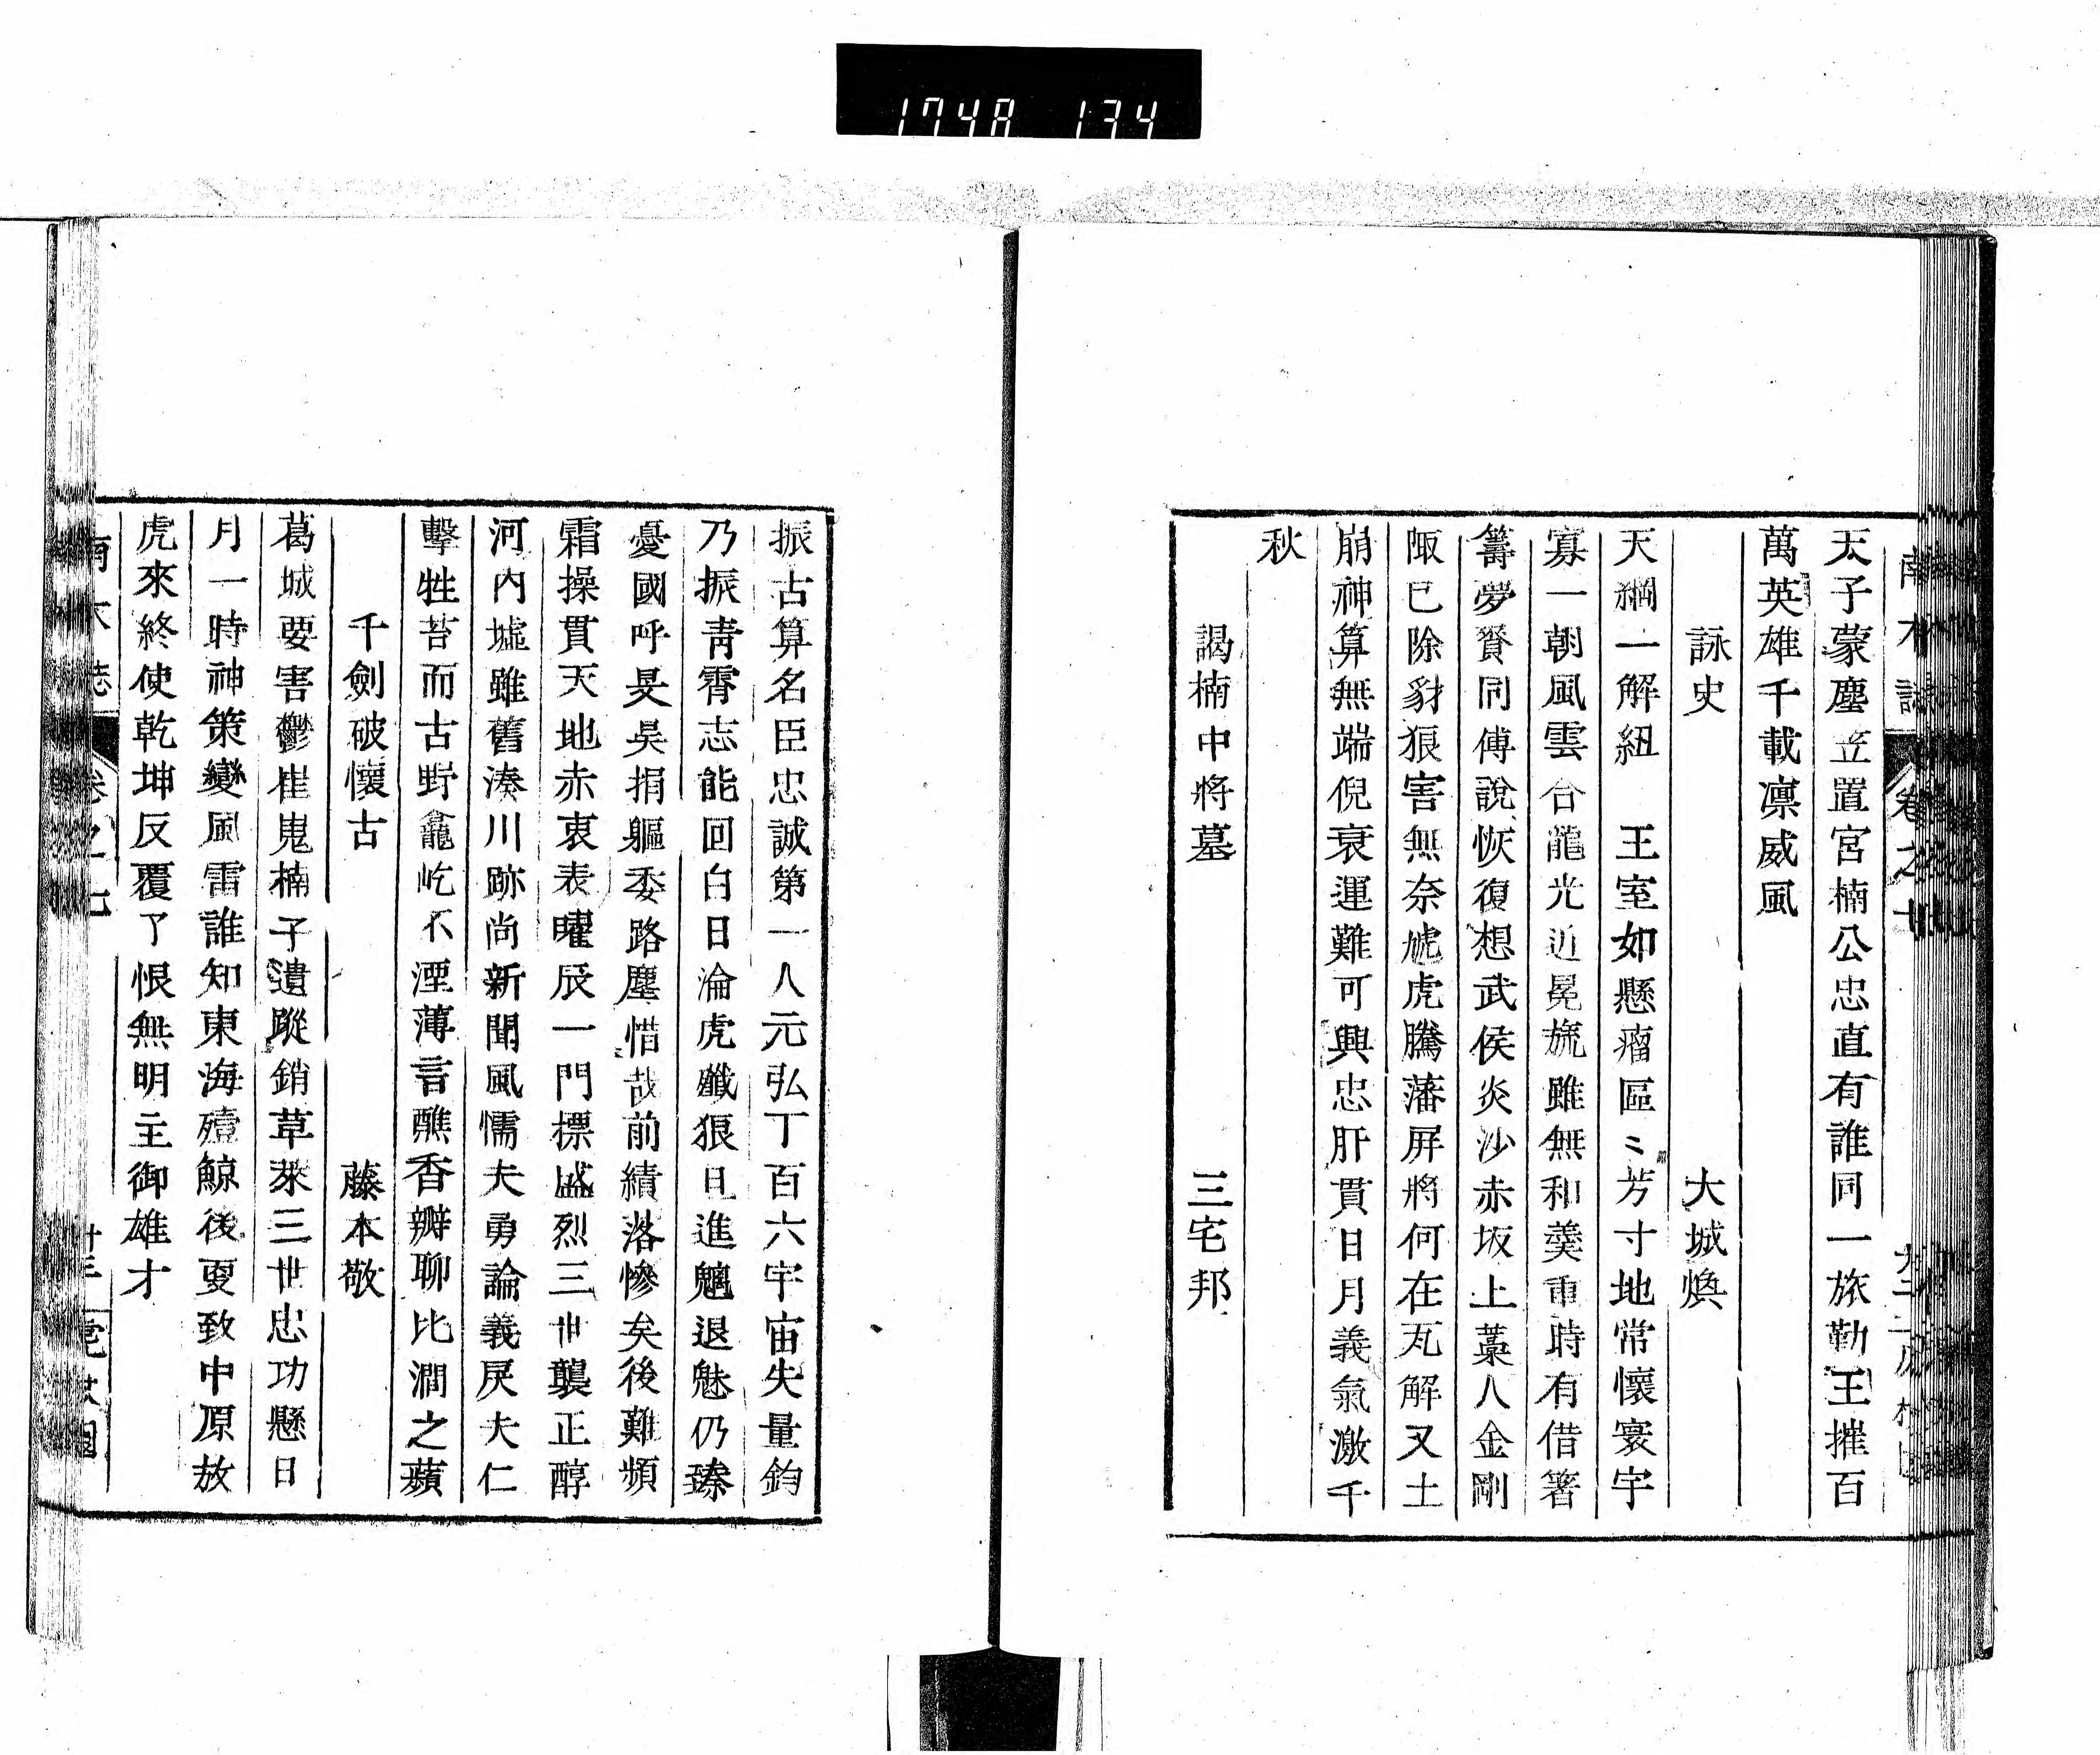 1748 134
天子蒙塵笠置宮楠公忠直有誰同一旅勤王摧百
萬英雄千載凛威風
詠史 大城煥
天綱一解紐 王室如懸瘤區〻芳寸地常懷寰宇
寡一朝風雲合龍光近冕旒雖無和羹重時有借箸
籌夢賚同傅說恢復想武侯炎沙赤坂上藁人金剛
陬已除豺狼害無奈虓虎騰藩屏將何在瓦解又土
崩神算無端倪衰運難可興忠肝貫日月義氣激千
秋
謁楠中將墓 三宅邦
振古算名臣忠誠第一人元弘丁百六宇宙失量鈞
乃振青霄志能回白日淪虎殲狼且進魑退魅仍臻
憂國呼旻昊捐軀委路塵惜哉前績落慘矣後難頻
霜操貫天地赤衷表曜辰一門標盛烈三世襲正醇
河内墟雖舊湊川跡尚新聞風懦夫勇論義戻夫仁
擊牲苔而古野龕屹不湮薄言醮香瓣聊比澗之蘋
千劍破懷古 藤本敬
葛城要害鬱崔嵬楠子遺蹤銷草萊三世忠功懸日
月一時神策變風雷誰知東海殪鯨後更致中原放
虎來終使乾坤反覆了恨無明主御雄才